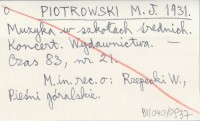 o PIOTROWSKI M. J. 1931.
Muzyka w szkołach średnich.
Koncert. Wydawnictwa. —
Czas 83, nr 21.
M.in. rec. o: Rzepecki W.,
Pieśni góralskie.
BI/040/DP37